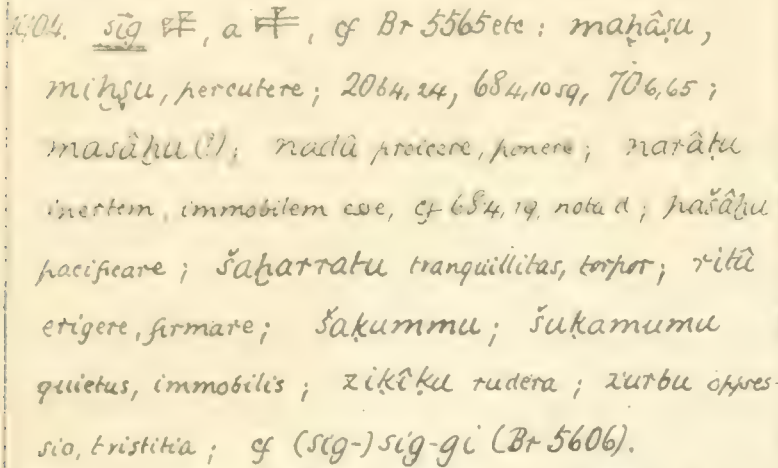 404. sīg 𒉺, a 𒉺, cf Br 5565 etc : maḫâṣu,
miḫṣu, percutere ; 2064,24, 684,10 sq, 706,65 ;
masâḫu (!) ; nadû proicere, ponere ; narâṭu
inertem, immobilem esse, cf 684,19, nota d ; pašâḫu
pacificare ; šaḫarratu tranquillitas, torpor ; ritû
erigere, firmare ; šaḳummu ; šuḳamumu
quietus, immobilis ; ziḳîḳu rudera ; zurbu oppres-
sio, tristitia ; cf (sig-) sig-gi (Br 5606).